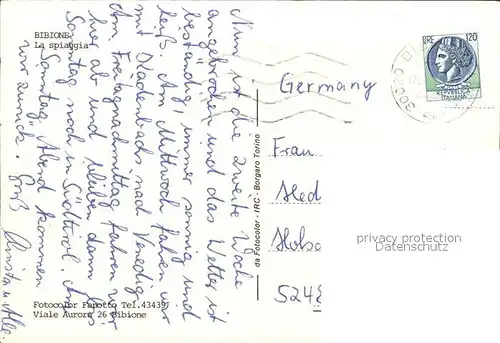 BIBIONE
La spiaggia
Nun ist die zweite Woche
angebrochen und das Wetter ist
beständig, immer sonnig und
heiß. Am Mittwoch fahren wir
mit Diadenbachs nach Venedig.
Am Freitagnachmittag fahren wir
hier ab und bleiben dann bis
Sonntag noch in Südtirol. Am
Sonntag Abend kommen
wir zurück. Gruß
Christa u. Alle.
Fotocolor Fanotto Tel.43439
Viale Aurora 26 Bibione
da Fotocolor - IRC - Borgaro Torino
LIRE 120
REPVBBLICA
ITALIANA
30020
Germany
Frau
Hed
Hohe
524
privacy protection
Datenschutz